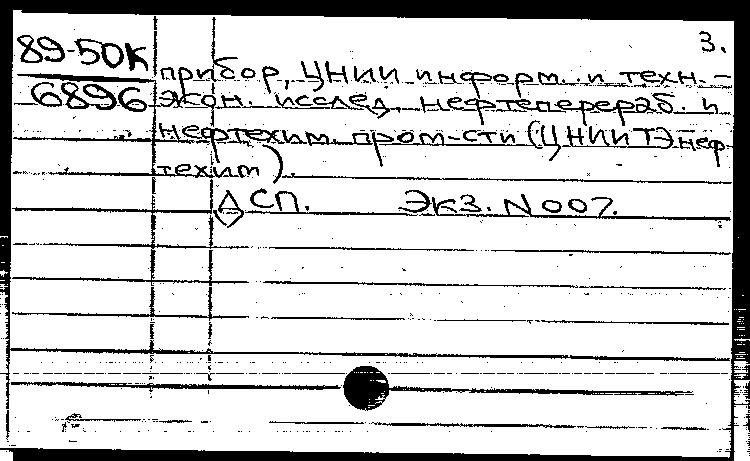 3.
89-50К
6896
прибор, ЦНИИ информ. и техн.-
экон. исслед. нефтеперераб. и
нефтехим. пром-сти (ЦНИИТЭнеф
техим).
ДСП. Экз. N 007.